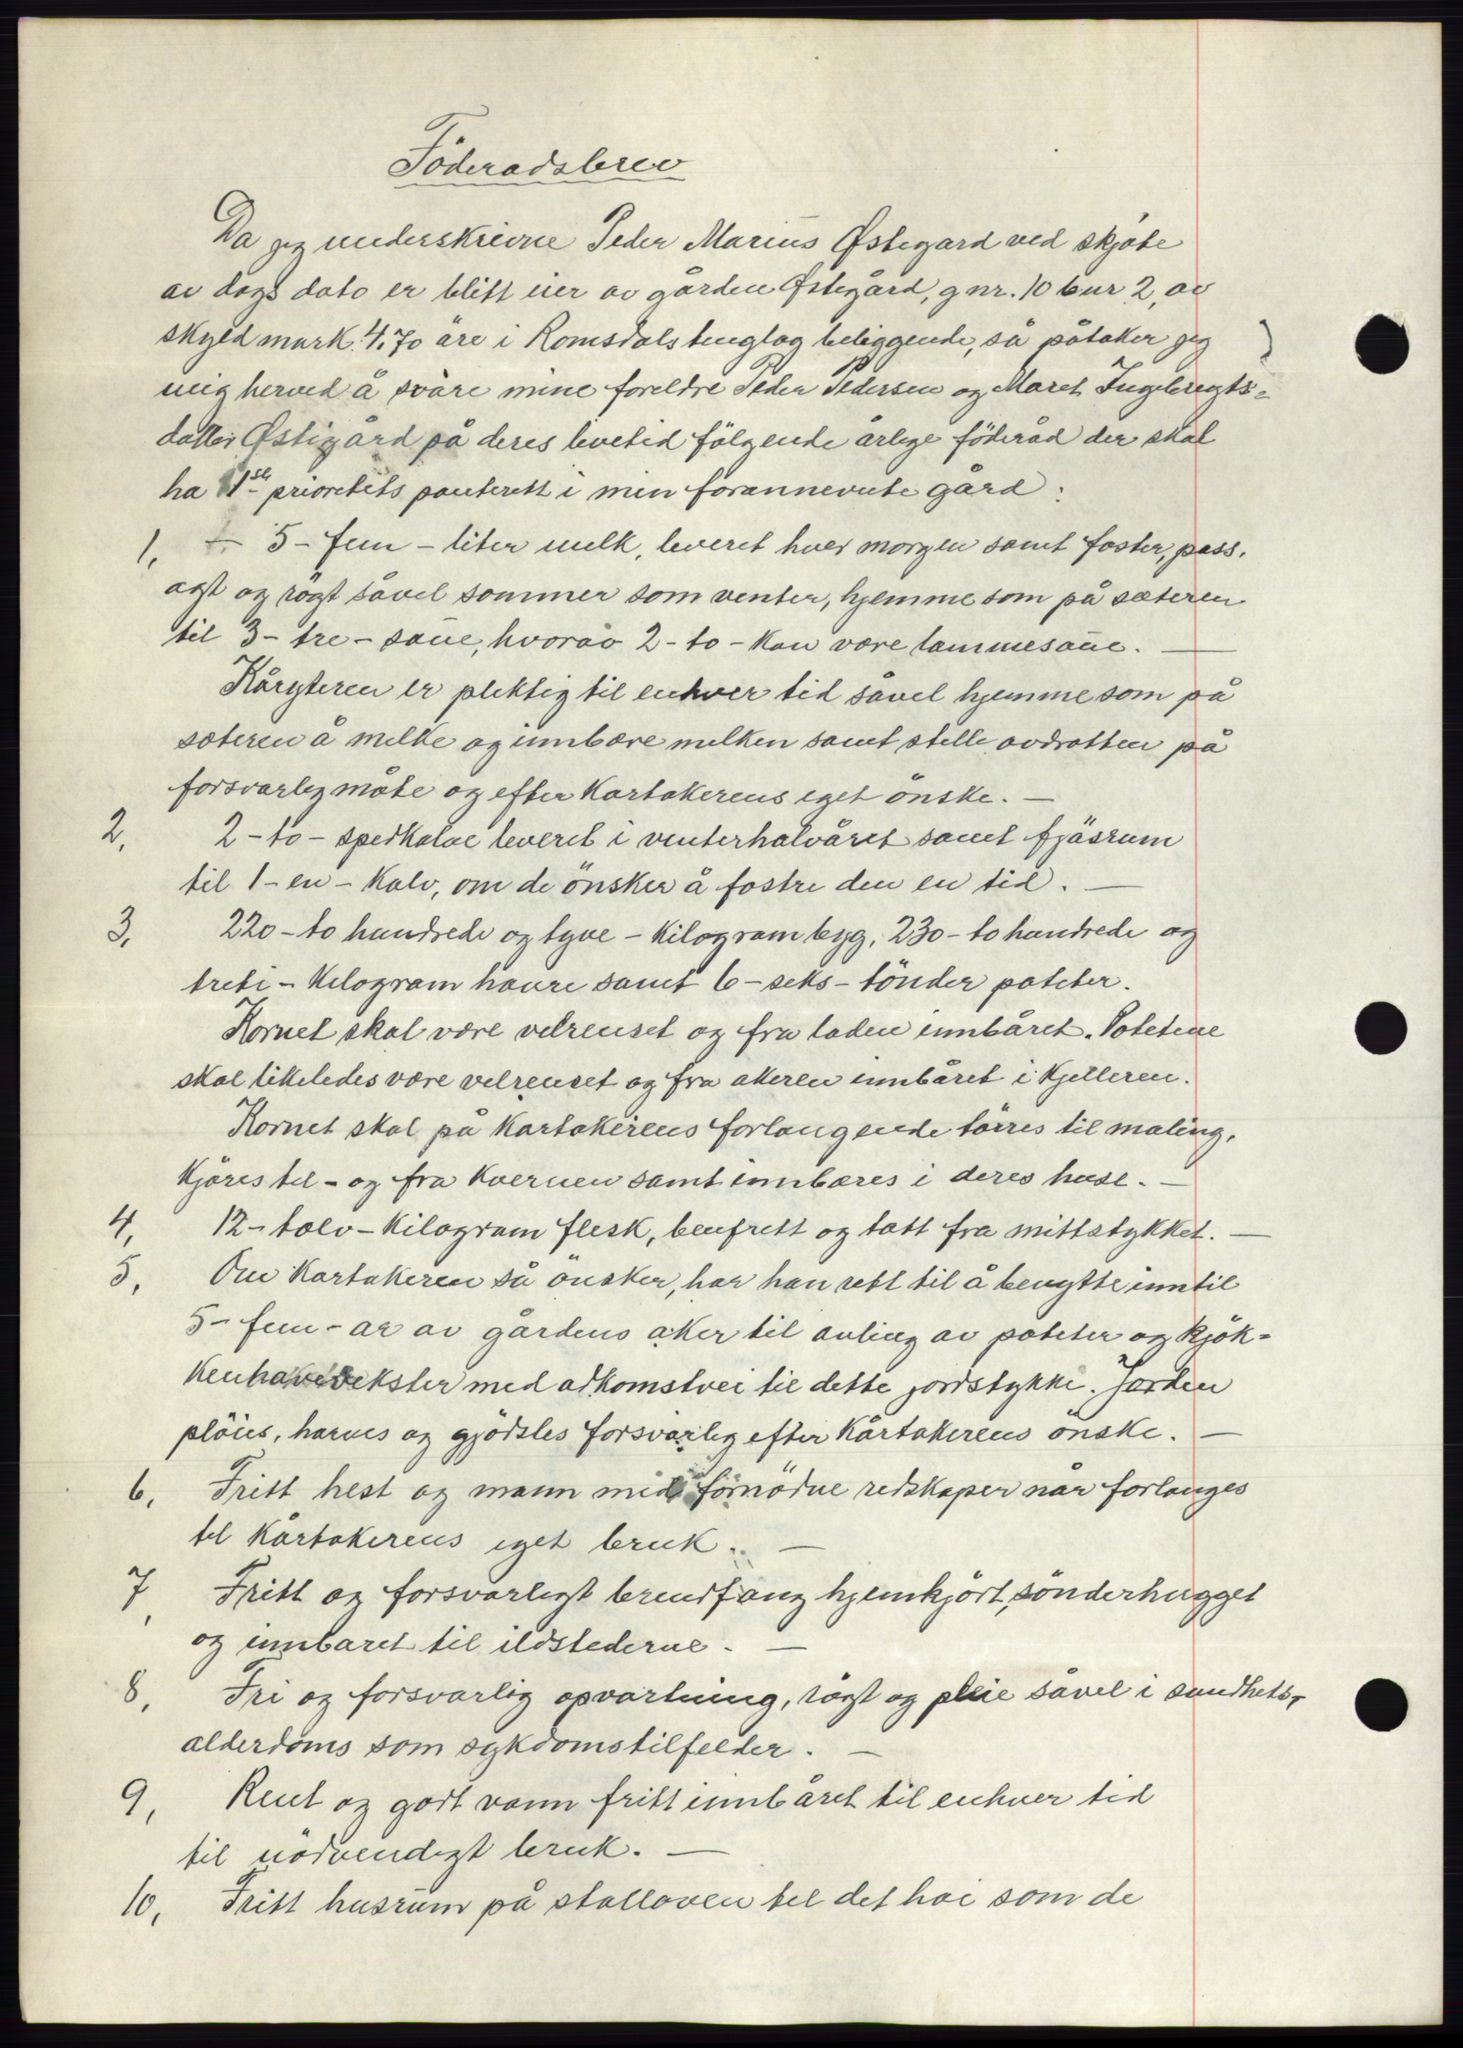 Föderadsbrev
Da jeg underskrevne Peder Marius Østegard ved skjöte
av dags dato er blitt eier av gården Østegård, gnr. 10 bnr 2, av
skyld mark 4.70 øre i Romsdals tinglag beliggende, så påtaker jeg
mig herved å svare mine foreldre Peder Pedersen og Maret Ingebregts-
datter Østigård på deres levetid fölgende årlige föderåd der skal
ha 1ste prioritets panterett i min forannevnte gård:
1, - 5 - fem - liter melk, leveret hver morgen samt foster, pass,
agt og rögt såvel sommer som venter, hjemme som på sæteren
til 3 - tre - saue, hvorav 2 - to - kan være lammesaue. —
Kåryteren er pliktig til enhver tid såvel hjemme som på
sæteren å melke og innbære melken samt stelle avdrotten på
forsvarlig måte og efter Kartakerens eget önske. —
2, 2 - to - spedkalve leveret i venterhalvåret samt fjäsrum
til 1 - en - Kalv, om de önsker å fostre den en tid. —
3, 220 - to hundrede og tyve - Kilogram byg, 230 - to hundrede og
treti - Kilogram havre samt 6 - seks - tönder poteter.
Kornet skal være velrenset og fra laden innbåret. Potetene
skal likeledes være velrenset og fra akeren innbåret i Kjelleren.
Kornet skal på Kartakerens forlangende törres til maling,
Kjöres til - og fra Kvernen samt innbæres i deres huse. —
4, 12 - tolv - Kilogram flesk, benfritt og tatt fra mittstykket. —
5, Om Kartakeren så önsker, har han rett til å benytte inntil
5 - fem - ar av gårdens aker til avling av poteter og kjök-
kenhavevekster med adkomstvei til dette jordstykke. Jorden
plöies, harves og gjödsles forsvarlig efter Kårtakerens önske. —
6, Fritt hest og mann med fornödne redskaper når forlanges
til Kårtakerens eget bruk. —
7, Fritt og forsvarligt brendfang hjemkjört, sönderhugget
og innbaret til ildstederne. —
8, Fri og forsvarlig opvartning, rögt og pleie såvel i sundhets-
alderdoms som sykdomstilfelder. —
9, Rent og godt vann fritt innbåret til enhver tid
til nödvendigt bruk. —
10, Fritt husrum på stalloven til det höi som de